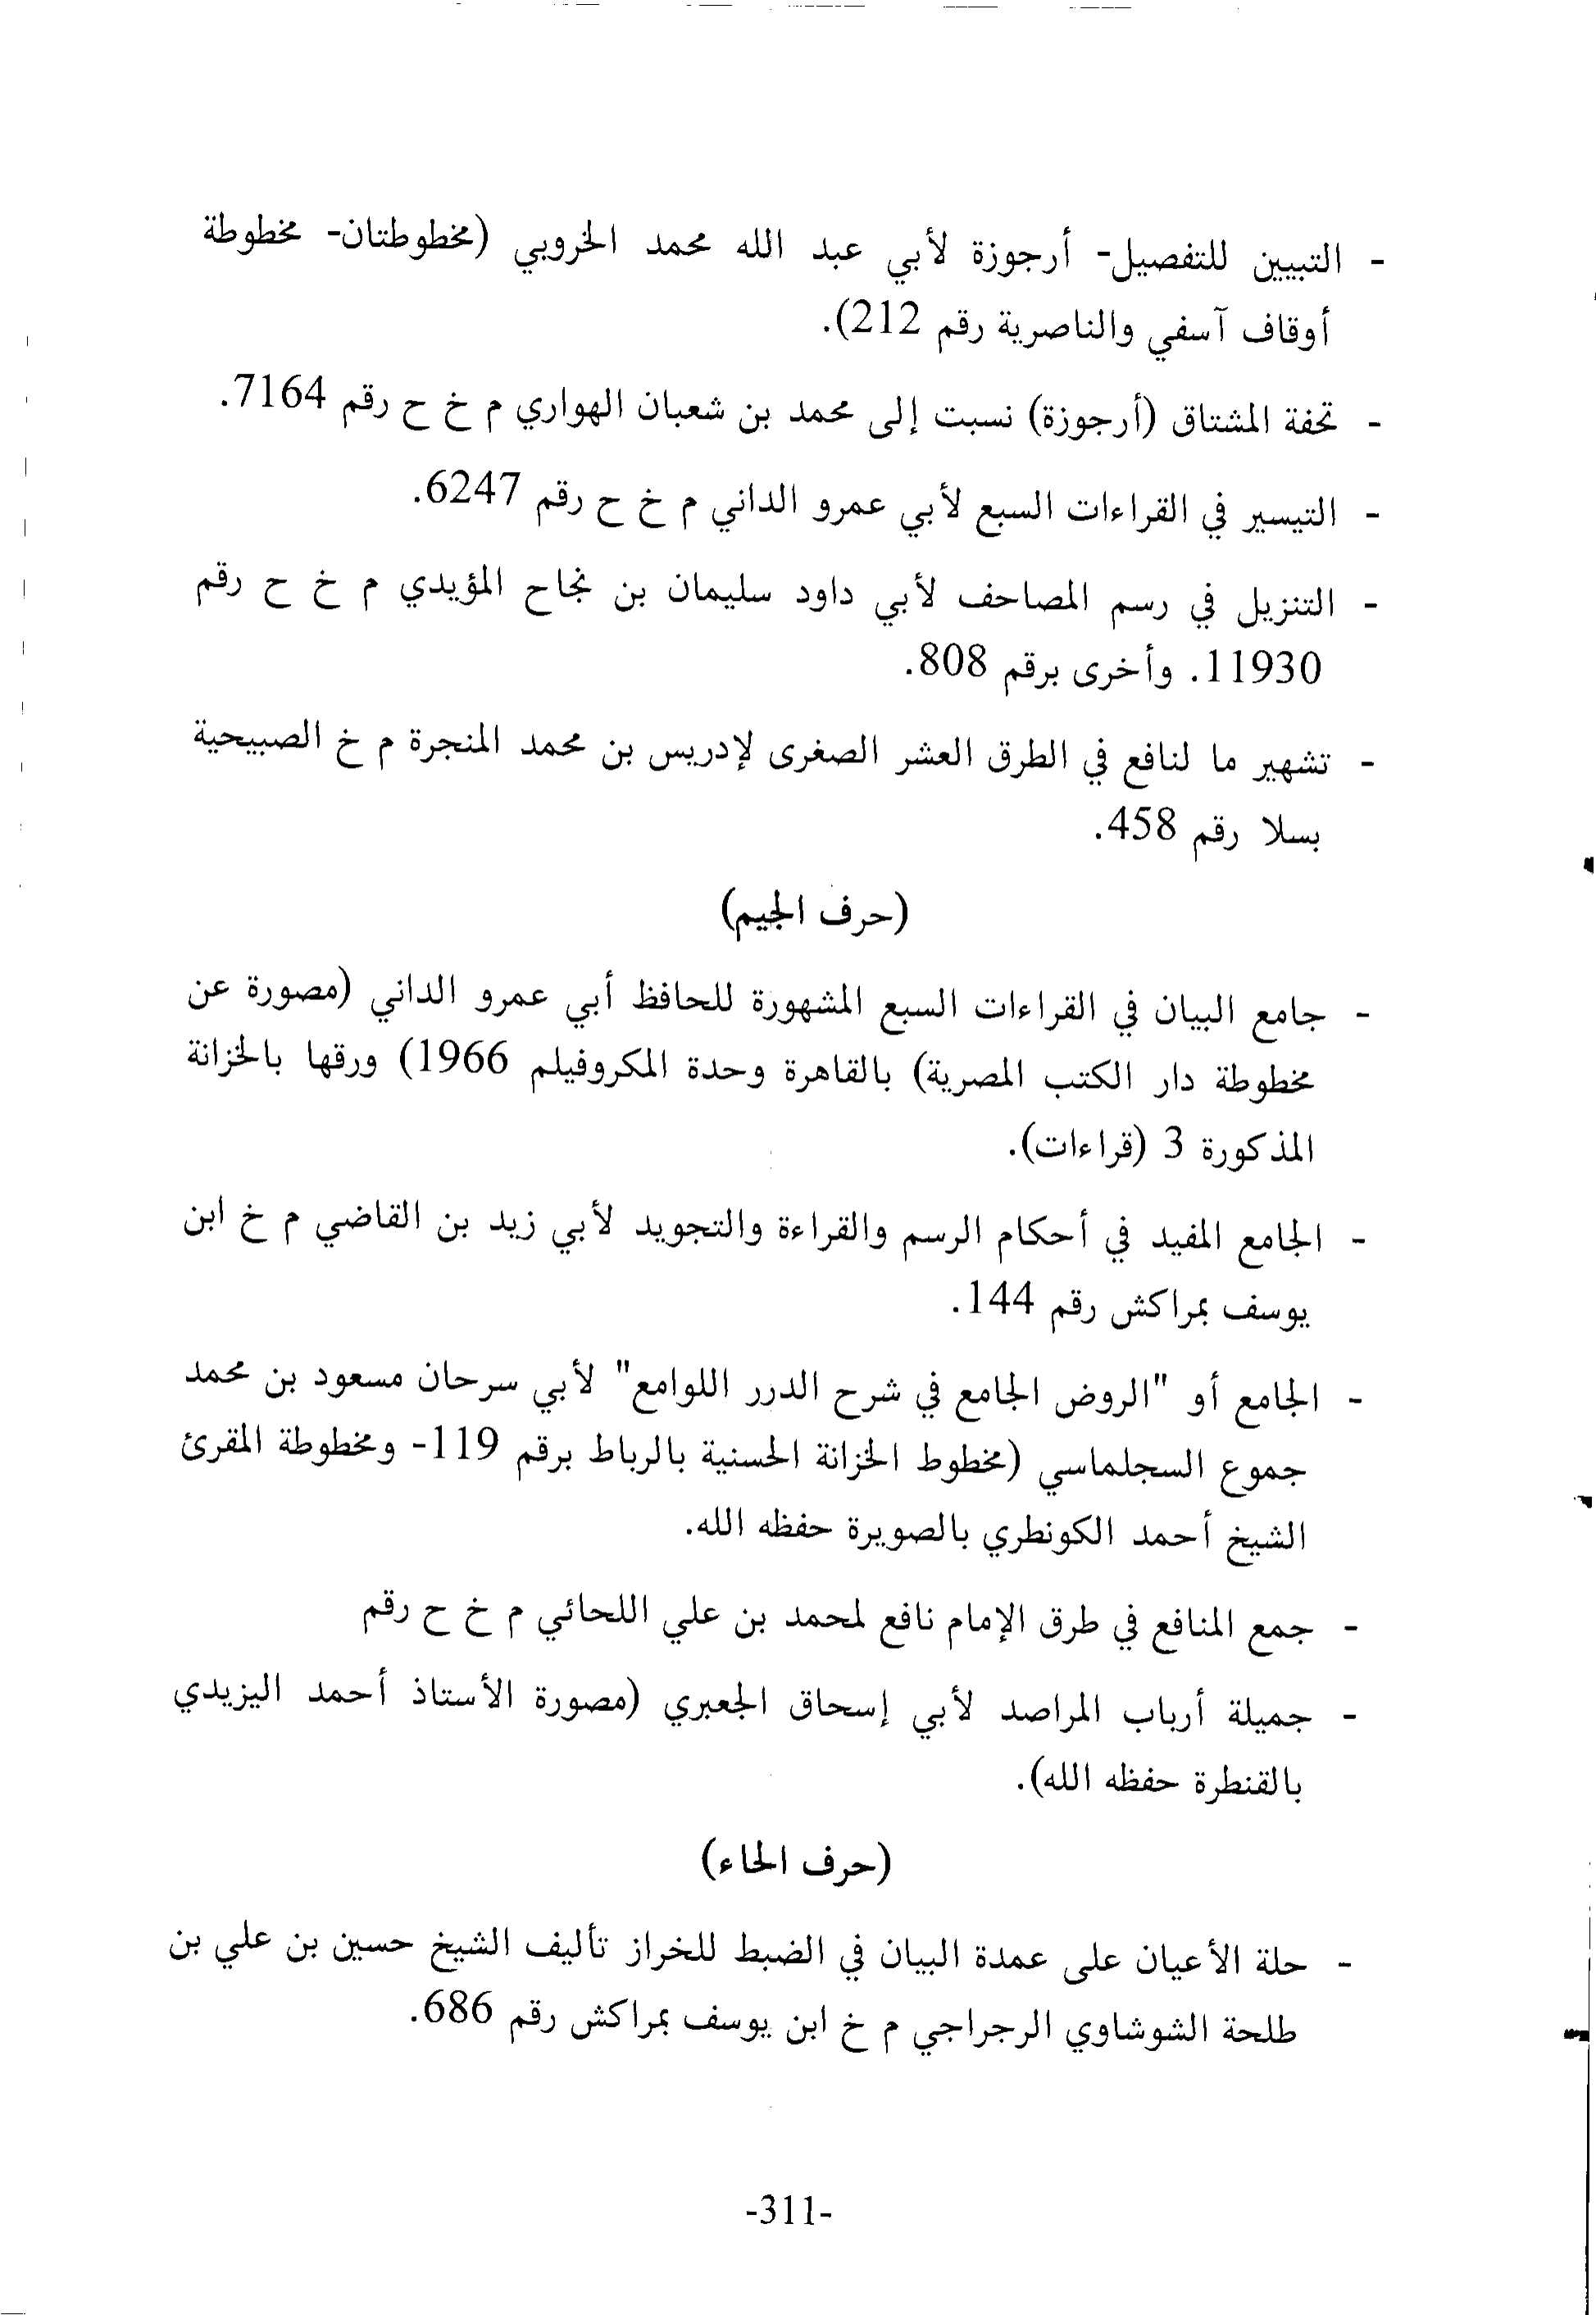 - التبيين للتفصيل- أرجوزة لأبي عبد الله محمد الخروبي (مخطوطتان- مخطوطة
أوقاف آسفي والناصرية رقم 212).
- تحفة المشتاق (أرجوزة) نسبت إلى محمد بن شعبان الهواري م خ ح رقم 7164.
- التيسير في القراءات السبع لأبي عمرو الداني م خ ح رقم 6247.
- التنزيل في رسم المصاحف لأبي داود سليمان بن نجاح المؤيدي م خ ح رقم
11930. وأخرى برقم 808.
- تشهير ما لنافع في الطرق العشر الصغرى لإدريس بن محمد المنجرة م خ الصبيحية
بسلا رقم 458.
(حرف الجيم)
- جامع البيان في القراءات السبع المشهورة للحافظ أبي عمرو الداني (مصورة عن
مخطوطة دار الكتب المصرية) بالقاهرة وحدة المكروفيلم 1966) ورقها بالخزانة
المذكورة 3 (قراءات).
- الجامع المفيد في أحكام الرسم والقراءة والتجويد لأبي زيد بن القاضي م خ ابن
يوسف بمراكش رقم 144.
- الجامع أو "الروض الجامع في شرح الدرر اللوامع" لأبي سرحان مسعود بن محمد
جموع السجلماسي (مخطوط الخزانة الحسنية بالرباط برقم 119- ومخطوطة المقرئ
الشيخ أحمد الكونطري بالصويرة حفظه الله.
- جمع المنافع في طرق الإمام نافع لمحمد بن علي اللحائي م خ ح رقم
- جميلة أرباب المراصد لأبي إسحاق الجعبري (مصورة الأستاذ أحمد اليزيدي
بالقنطرة حفظه الله).
(حرف الحاء)
- حلة الأعيان على عمدة البيان في الضبط للخراز تأليف الشيخ حسين بن علي بن
طلحة الشوشاوي الرجراجي م خ ابن يوسف بمراكش رقم 686.
-311-